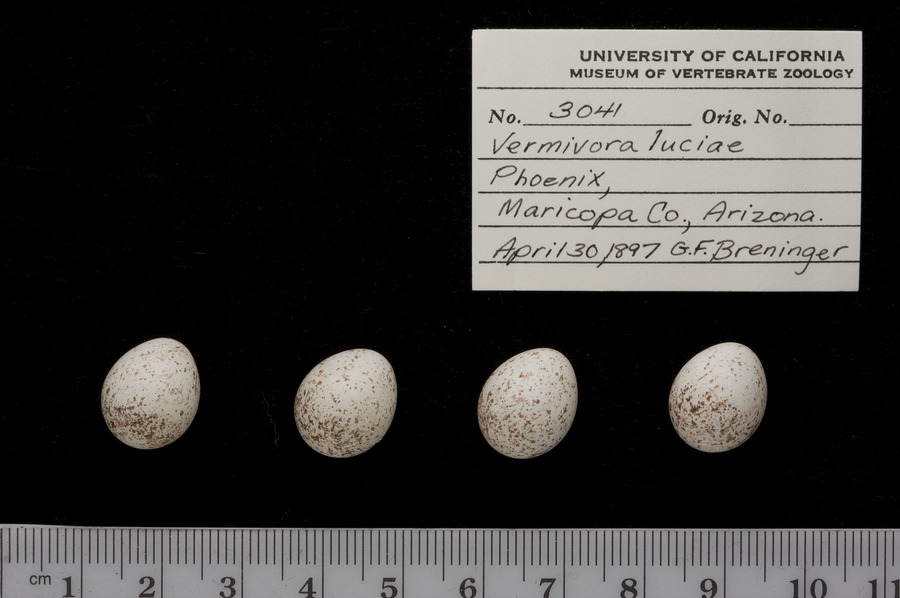 UNIVERSITY OF CALIFORNIA
MUSEUM OF VERTEBRATE ZOOLOGY
No. 3041 Orig. No.
Vermivora luciae
Phoenix,
Maricopa Co., Arizona.
April 30, 1897 G.F. Breninger
cm 1 2 3 4 5 6 7 8 9 10 11